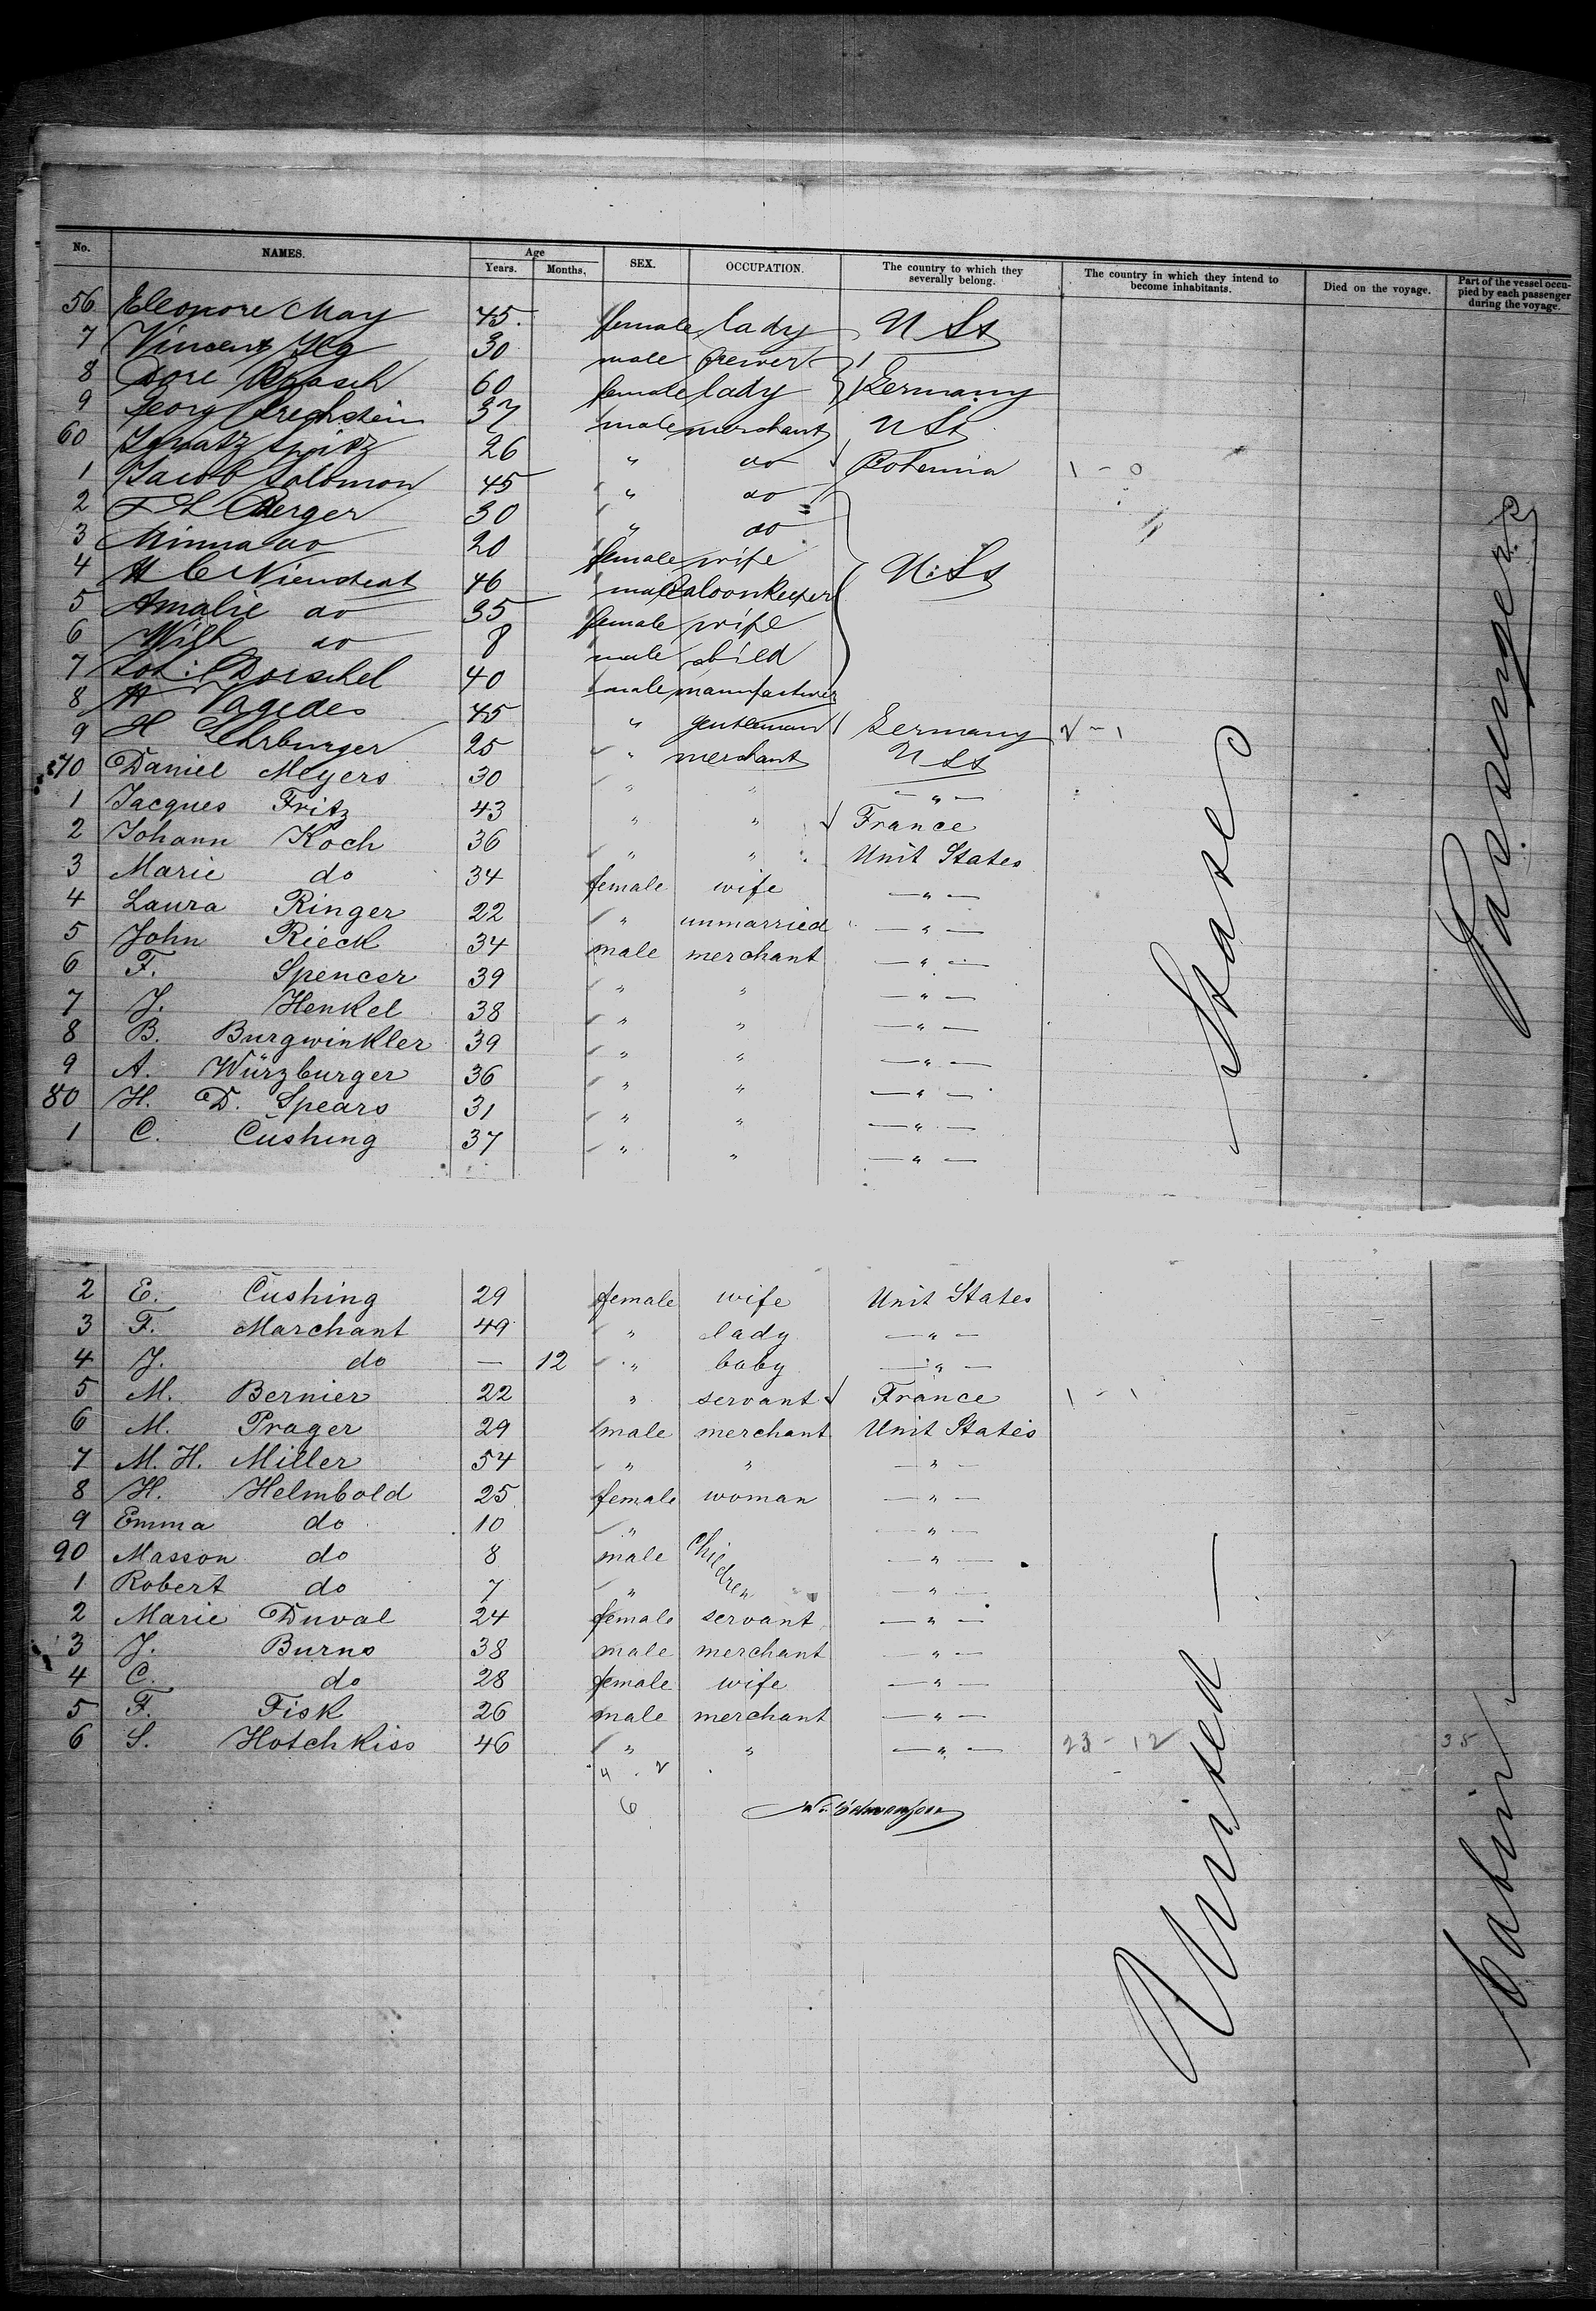 No. NAMES. Age Years. Months, SEX. OCCUPATION. The country to which they severally belong. The country in which they intend to become inhabitants. Died on the voyage. Part of the vessel occupied by each passenger during the voyage.
56 Eleonore May 45. female lady U Sts
7 Vincenz Ilg 30 male brewer
8 Dore 60 female lady Germany
9 Georg 37 male merchant U Sts
60 Ignatz Spitz 26 " do Bohemia 1 - 0
1 Jacob Solomon 45 " do
2 F L Berger 30 " do
3 Minna do 20 female wife U. Sts
4 H C 46 male Saloonkeeper
5 Amalie do 35 female wife
6 Wilh do 8 male child
7 Joh: Dorschel 40 male manufacturer
8 H Vagedes 45 " gentleman Germany 2 - 1
9 H Lehrburger 25 " merchant U Sts
70 Daniel Meyers 30 " " — " —
1 Jacques Fritz 43 " " France
2 Johann Koch 36 " " Unit States
3 Marie do 34 female wife — " —
4 Laura Ringer 22 " unmarried — " —
5 John Rieck 34 male merchant — " —
6 F. Spencer 39 " " — " —
7 J. Henkel 38 " " — " —
8 B. Burgwinkler 39 " " — " —
9 A. Würzburger 36 " " — " —
80 H. D. Spears 31 " " — " —
1 C. Cushing 37 " " — " —
2 E. Cushing 29 female wife Unit States
3 F. Marchant 49 " lady — " —
4 J. do — 12 " baby — " —
5 M. Bernier 22 " servant France 1 - 1
6 M. Prager 29 male merchant Unit States
7 M. H. Miller 54 " " — " —
8 H. Helmbold 25 female woman — " —
9 Emma do 10 " — " —
90 Masson do 8 male Children — " —
1 Robert do 7 " — " —
2 Marie Duval 24 female servant — " —
3 J. Burns 38 male merchant — " —
4 C. do 28 female wife — " —
5 F. Fisk 26 male merchant — " —
6 S. Hotchkiss 46 " " — " — 23 - 12 38
4 . 2
6
United States
Cabin Passengers